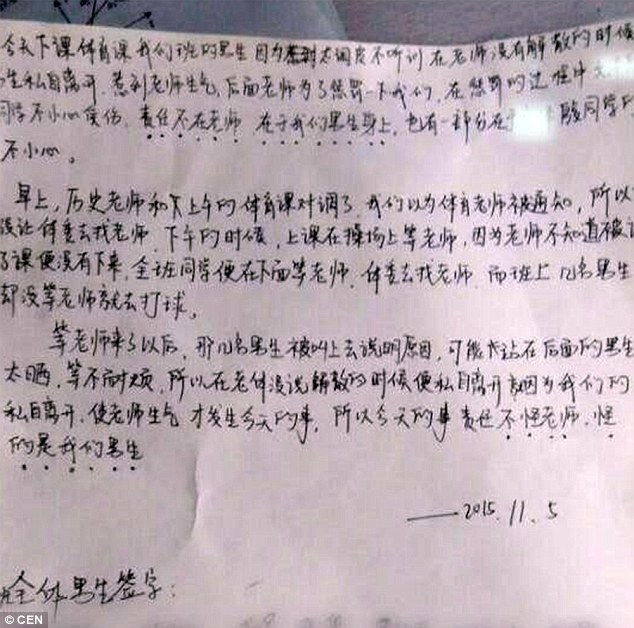 今天下课体育课我们班的男生因为太调皮不听训在老师没有解散的时候
生私自离开,惹到老师生气,后面老师为了惩罚一下我们,在惩罚的过程中
同学不小心受伤,责任不在老师 在于我们男生身上,也有一部分在 同学的
不小心。
早上,历史老师和下上午的体育课对调了,我们以为体育老师被通知,所以
没让体委去找老师,下午的时候,上课在操场上等老师,因为老师不知道被
了课便没有下来,全班同学便在下面等老师,体委去找老师,而班上几名男生
却没等老师就去打球。
等老师来了以后,那几名男生被叫上去说明原因,可能站在后面的男生
太晒,等不耐烦,所以在老师没说解散的时候便私自离开,因为我们的
私自离开,使老师生气 才发生今天的事,所以今天的事责任不怪老师,怪
的是我们男生
——2015.11.5
全体男生签字:
© CEN